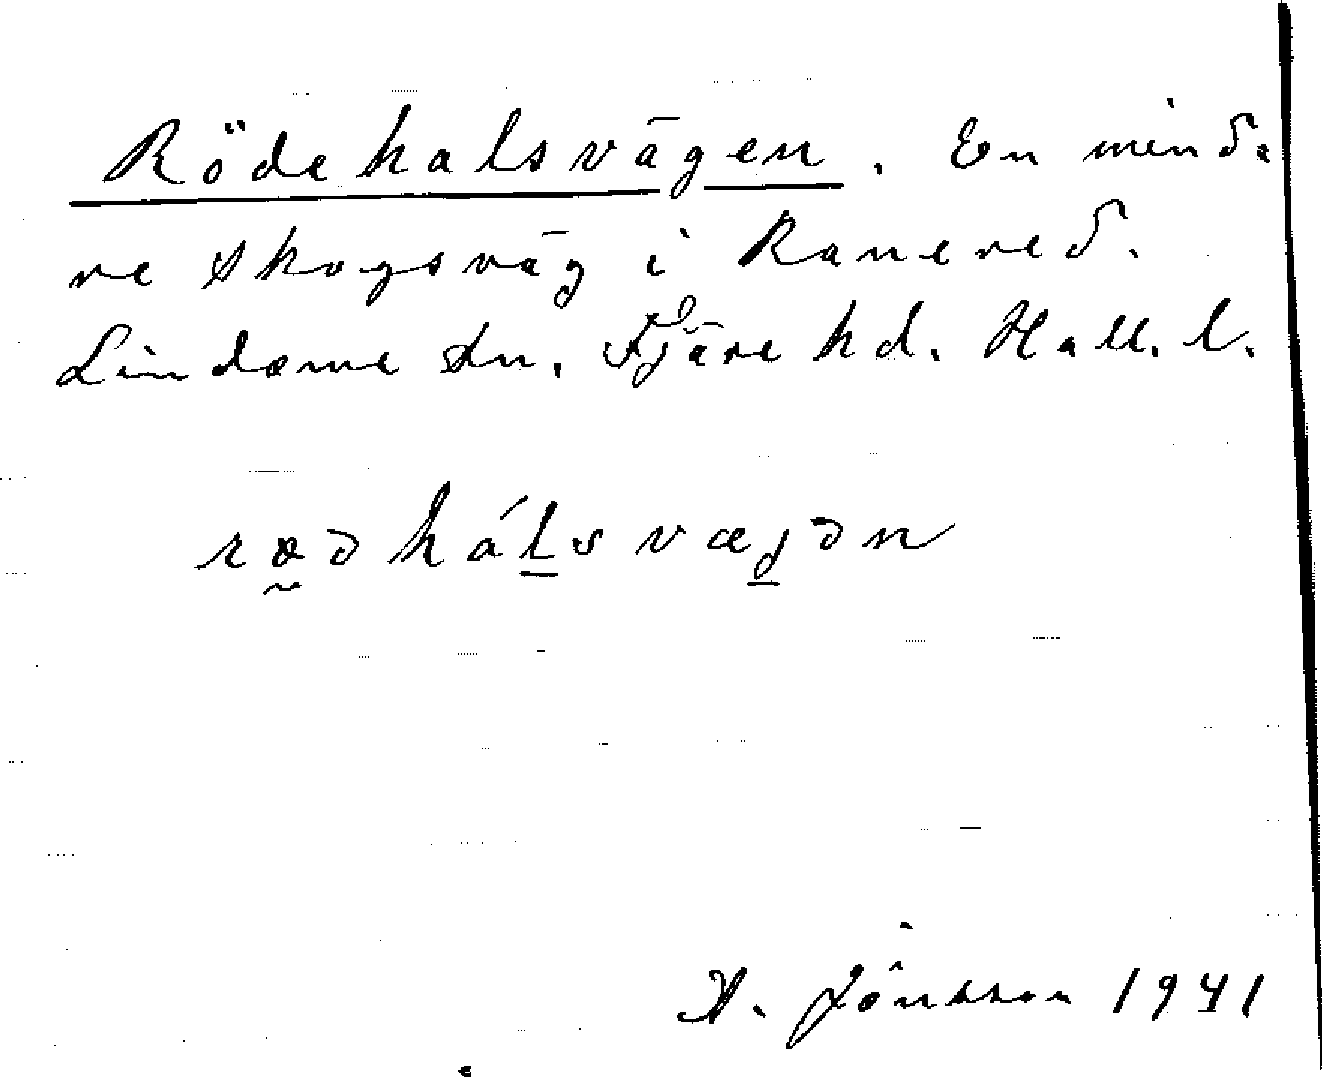 Rödehalsvägen. En mind-
re skogsväg i Ranered.
Lindome sn. Fjäre hd. Hall. l.
rœ̰əhál̲svæj̲ən
A. Jönsson 1941